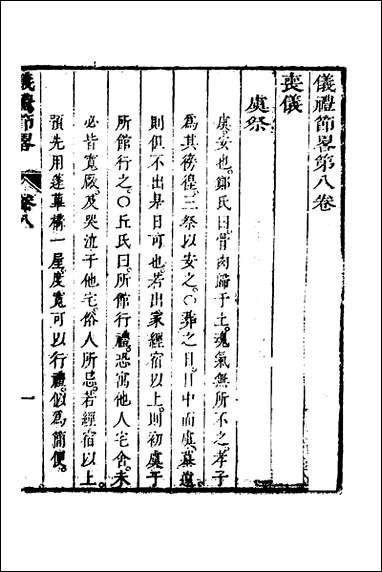 儀禮節畧第八卷
喪儀
虞祭
虞安也。鄭氏曰骨肉歸于土。魂氣無所不之。孝子
為其彷徨。三祭以安之。〇葬之日。日中而虞。墓遠
則但不出是日可也。若出家經宿以上。則初虞于
所館行之。〇丘氏曰。所館行禮。恐寓他人宅舍。未
必皆寬厰。及哭泣于他宅。俗人所忌。若經宿以上
預先用蓬葦構一屋。度寬可以行禮。似為簡便。
儀禮節畧
卷八
一